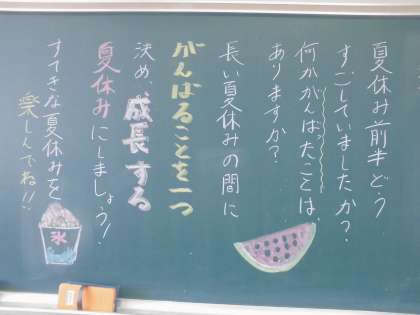 夏休み前半どう
すごしていましたか?
何かがんばったことは、
ありますか?
長い夏休みの間に
がんばることを一つ
決め、成長する
夏休みにしましょう!
すてきな夏休みを
楽しんでね!!
氷